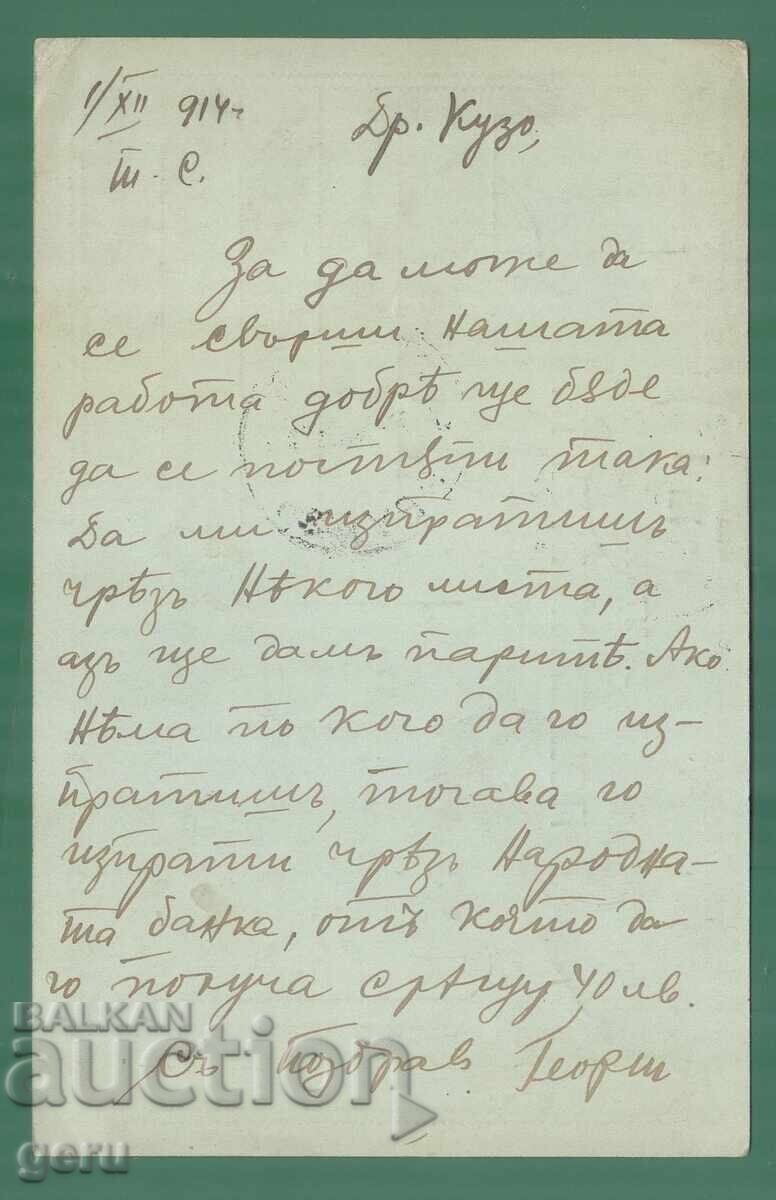 1/XII 914
Др. Кузо,
Т. С.
За да може да
се свърши нашата
работа добрѣ ще бѫде
да се постѫпи така:
Да ми изпратишъ
чрѣзъ нѣкого листа, а
азъ ще дамъ паритѣ. Ако
нѣма по кого да го из-
пратишъ, тогава го
изпрати чрѣзъ Народна-
та банка, отъ която да
го получа срѣщу 40 лв.
Съ поздрав Георги
BALKAN
auction
geru